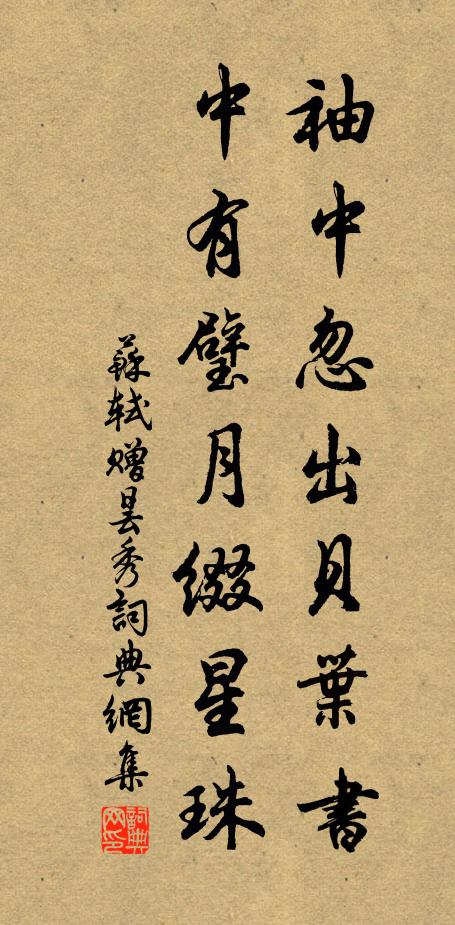 袖中忽出貝葉書
中有璧月綴星珠
蘇軾贈曇秀詞典網集
詞典網印